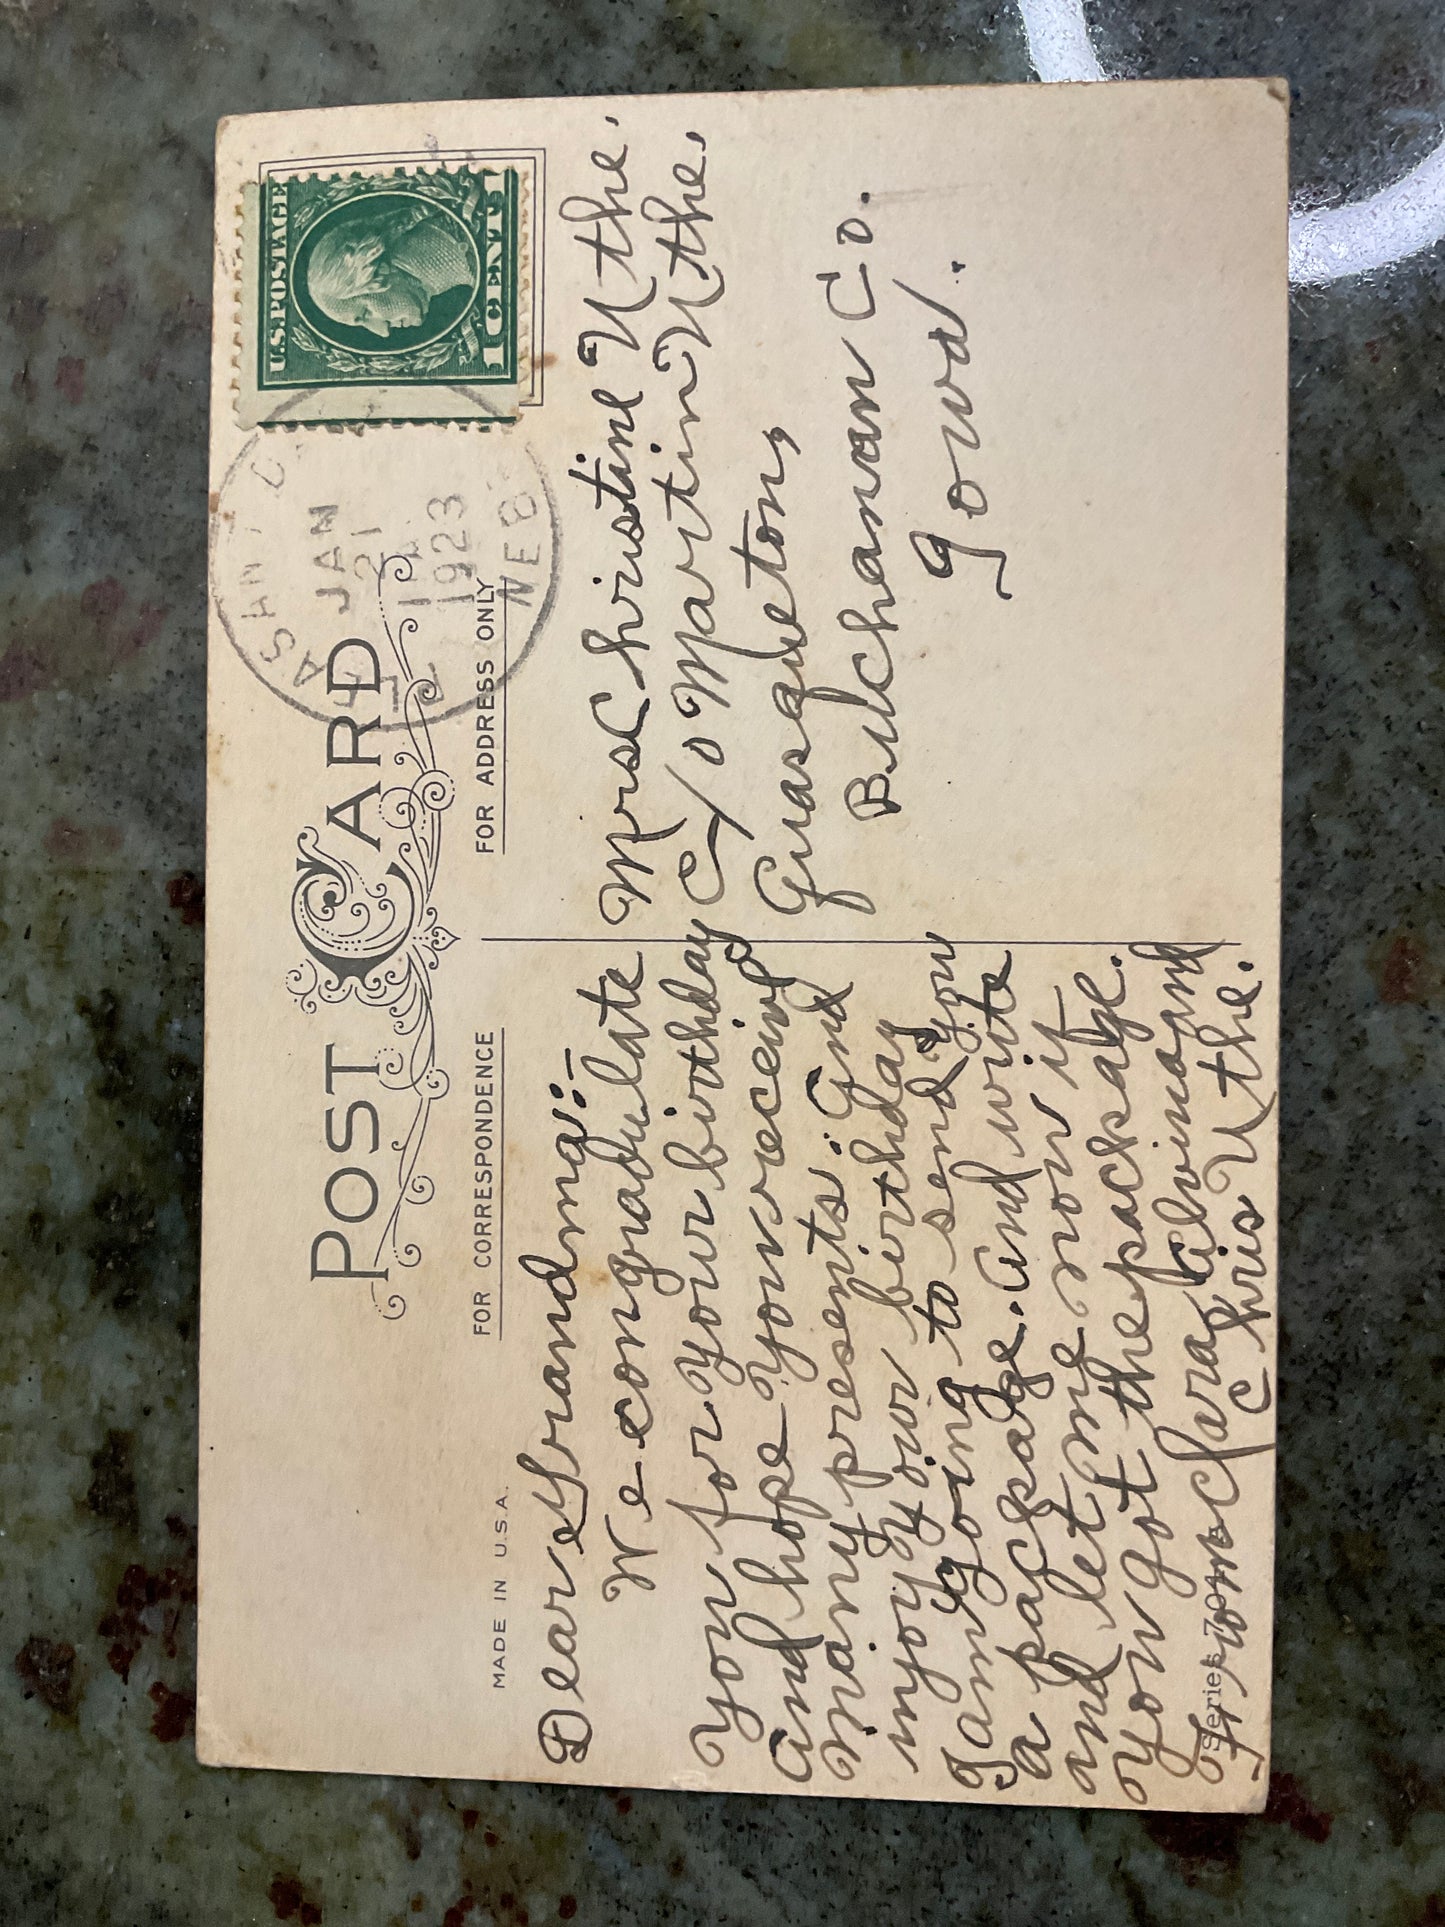 POST CARD
U.S. POSTAGE
1 CENT 1
JAN
21
1923
NEB
FOR CORRESPONDENCE
FOR ADDRESS ONLY
MADE IN U.S.A.
Dear Grandma:-
We congradulate
you for your birthday
and hope you receive
many presents. And
injoy your birthday
I am going to send you
a package. And write
and let me now if
you got the package.
From Clara Alvina and
Chris Uthe.
Series
Mrs Christine Uthe.
C/o Martin Uthe.
Quasqueton,
Buchanan Co.
Iowa.